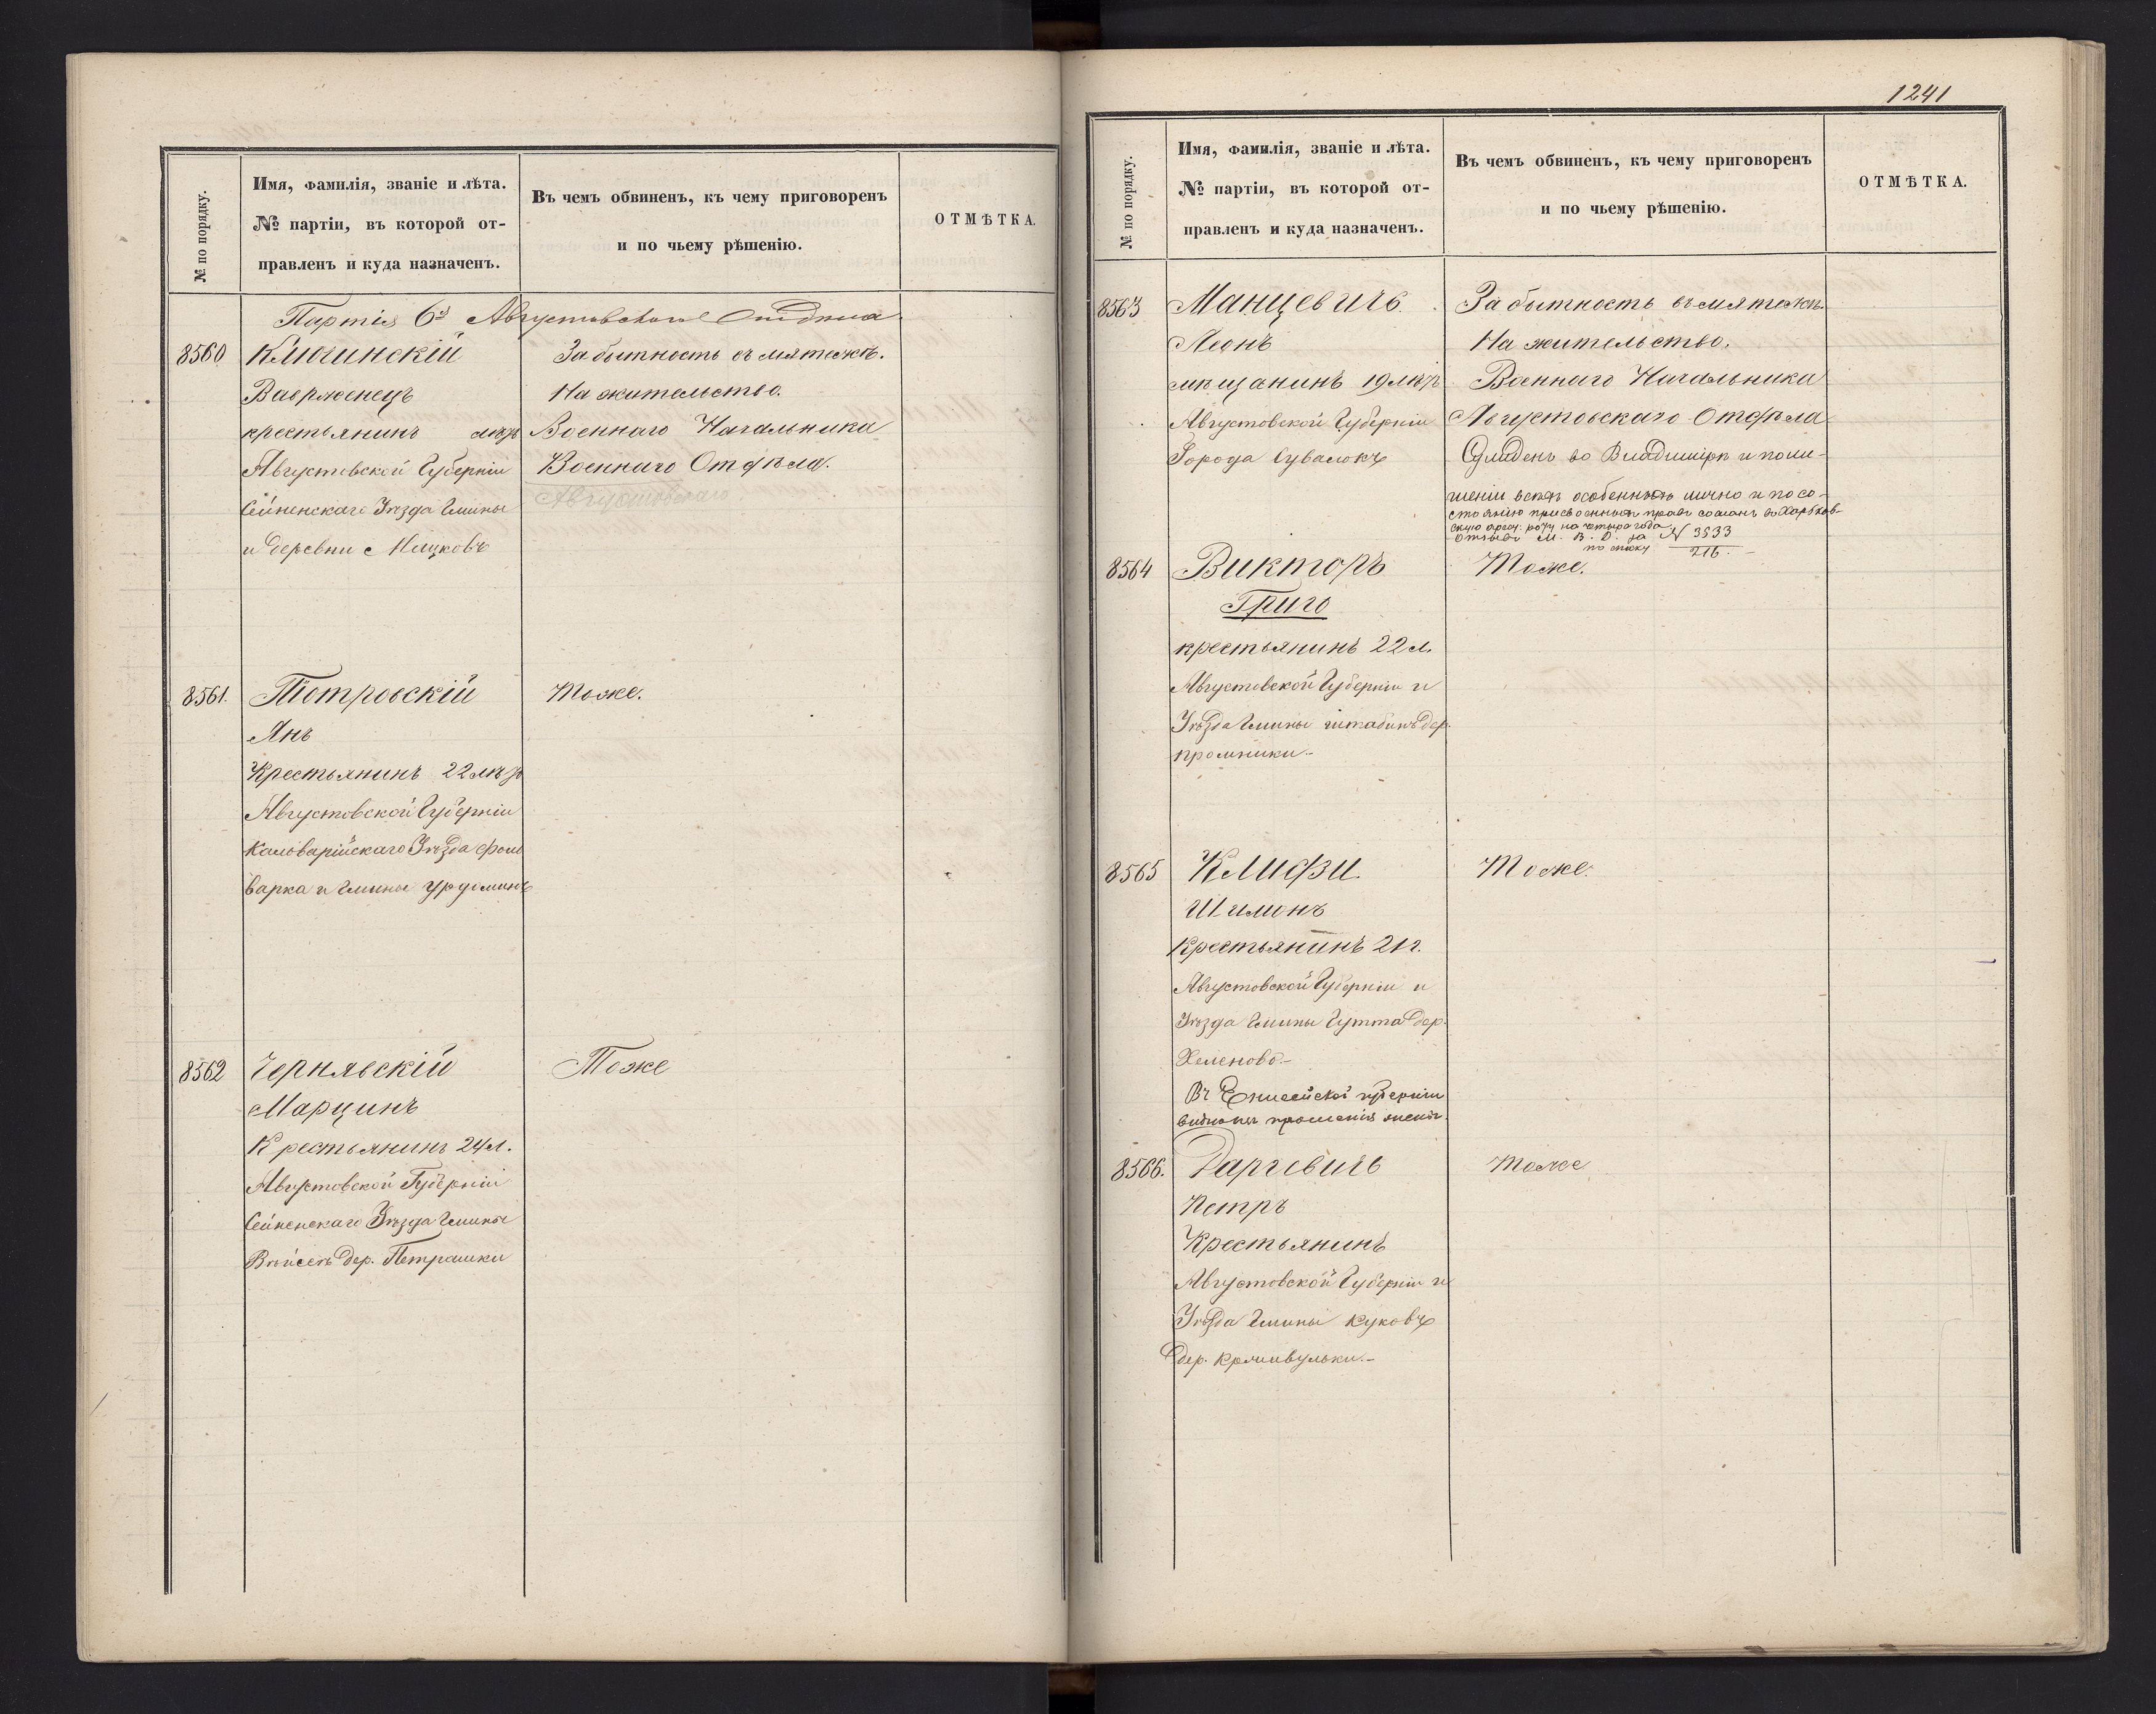 № по порядку.
Имя, фамилія, званіе и лѣта.
№ партіи, въ которой от-
правленъ и куда назначенъ.
Въ чемъ обвиненъ, къ чему приговоренъ
и по чьему рѣшенію.
ОТМѢТКА.
Партія 6я Августовскаго Отдѣла
8560
Ключинскій
Ваврженецъ
крестьянинъ лѣтъ
Августовской Губерніи
Сейненскаго Уѣзда Гмины
и деревни
За бытность въ мятежѣ.
На жительство.
Военнаго Начальника
Военнаго Отдѣла.
Августовскаго
8561.
Піотровскій
Янъ
Крестьянинъ 22 лѣтъ
Августовской Губерніи
Кальварійскаго Уѣзда фоль
варка и Гмины Урдоминъ
Тоже.
8562
Чернявскій
Марцинъ
Крестьянинъ 24 л.
Августовской Губерніи
Сейненскаго Уѣзда Гмины
Вѣйсеѣ дер. Петрашки
Тоже
1241
№ по порядку.
Имя, фамилія, званіе и лѣта.
№ партіи, въ которой от-
правленъ и куда назначенъ.
Въ чемъ обвиненъ, къ чему приговоренъ
и по чьему рѣшенію.
ОТМѢТКА.
8563
Манцевичъ.
Леонъ
мѣщанинъ 19 лѣтъ
Августовской Губерніи
Города Сувалокъ
За бытность въ мятежѣ.
На жительство.
Военнаго Начальника
Августовскаго Отдѣла
во Владимірѣ и по ли-
шеніи всѣхъ особенныхъ лично и по со-
стоянію присвоенныхъ правъ сосланъ въ Харьков-
скую арест. роту на четыре года
Отзывъ М. В. Д. за № 3533
по списку 216.
8564
Викторъ
Григо
крестьянинъ 22 л.
Августовской Губерніи и
Уѣзда Гмины Штабинъ дер.
Промники.-
Тоже.
8565
Клифзи.
Шимонъ
Крестьянинъ 21 г.
Августовской Губерніи и
Уѣзда Гмины Гутта дер.
Хеленово.-
Въ Енисейской губерніи
видно изъ прошенія жены.
Тоже.
8566.
Даргевичъ
Петръ
Крестьянинъ
Августовской Губерніи и
Уѣзда Гмины Куковъ
дер.
Тоже